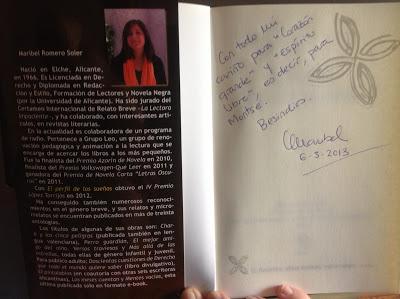 Maribel Romero Soler
Nació en Elche, Alicante,
en 1966. Es Licenciada en De-
recho y Diplomada en Redac-
ción y Estilo, Formación de Lectores y Novela Negra
(por la Universidad de Alicante). Ha sido jurado del
Certamen Internacional de Relato Breve «La Lectora
Impaciente», y ha colaborado, con interesantes artí-
culos, en revistas literarias.
En la actualidad es colaboradora de un programa
de radio. Pertenece a Grupo Leo, un grupo de reno-
vación pedagógica y animación a la lectura que se
encarga de acercar los libros a los más pequeños.
Fue la finalista del Premio Azorín de Novela en 2010,
finalista del Premio Volkswagen-Qué Leer en 2011 y
ganadora del Premio de Novela Corta "Letras Oscu-
ras" en 2011.
Con El perfil de los sueños obtuvo el IV Premio
López Torrijos en 2012.
Ha conseguido también numerosos reconoci-
mientos en el género breve, y sus relatos y micro-
rrelatos se encuentran publicados en más de treinta
antologías.
Los títulos de algunas de sus obras son: Char-
ly y los cinco peligros (publicada también en len-
gua valenciana), Perro guardián, El mejor ami-
go del nino, Versos traviesos y Más allá de las
estrellas, todas ellas de género infantil y juvenil.
Para público adulto: Doscientas cuestiones de Derecho
que todo el mundo quiere saber (libro divulgativo),
El pintalabios (en coautoría con otras seis escritoras
alicantinas), Los meses cuentan y Héroes vacíos, esta
última publicada solo en formato e-book.
Con todo mi
cariño para "Corazón
gigante" y "espíritu
libre", es decir, para
Montse.
Besiños.
Maribel
6-5-2013